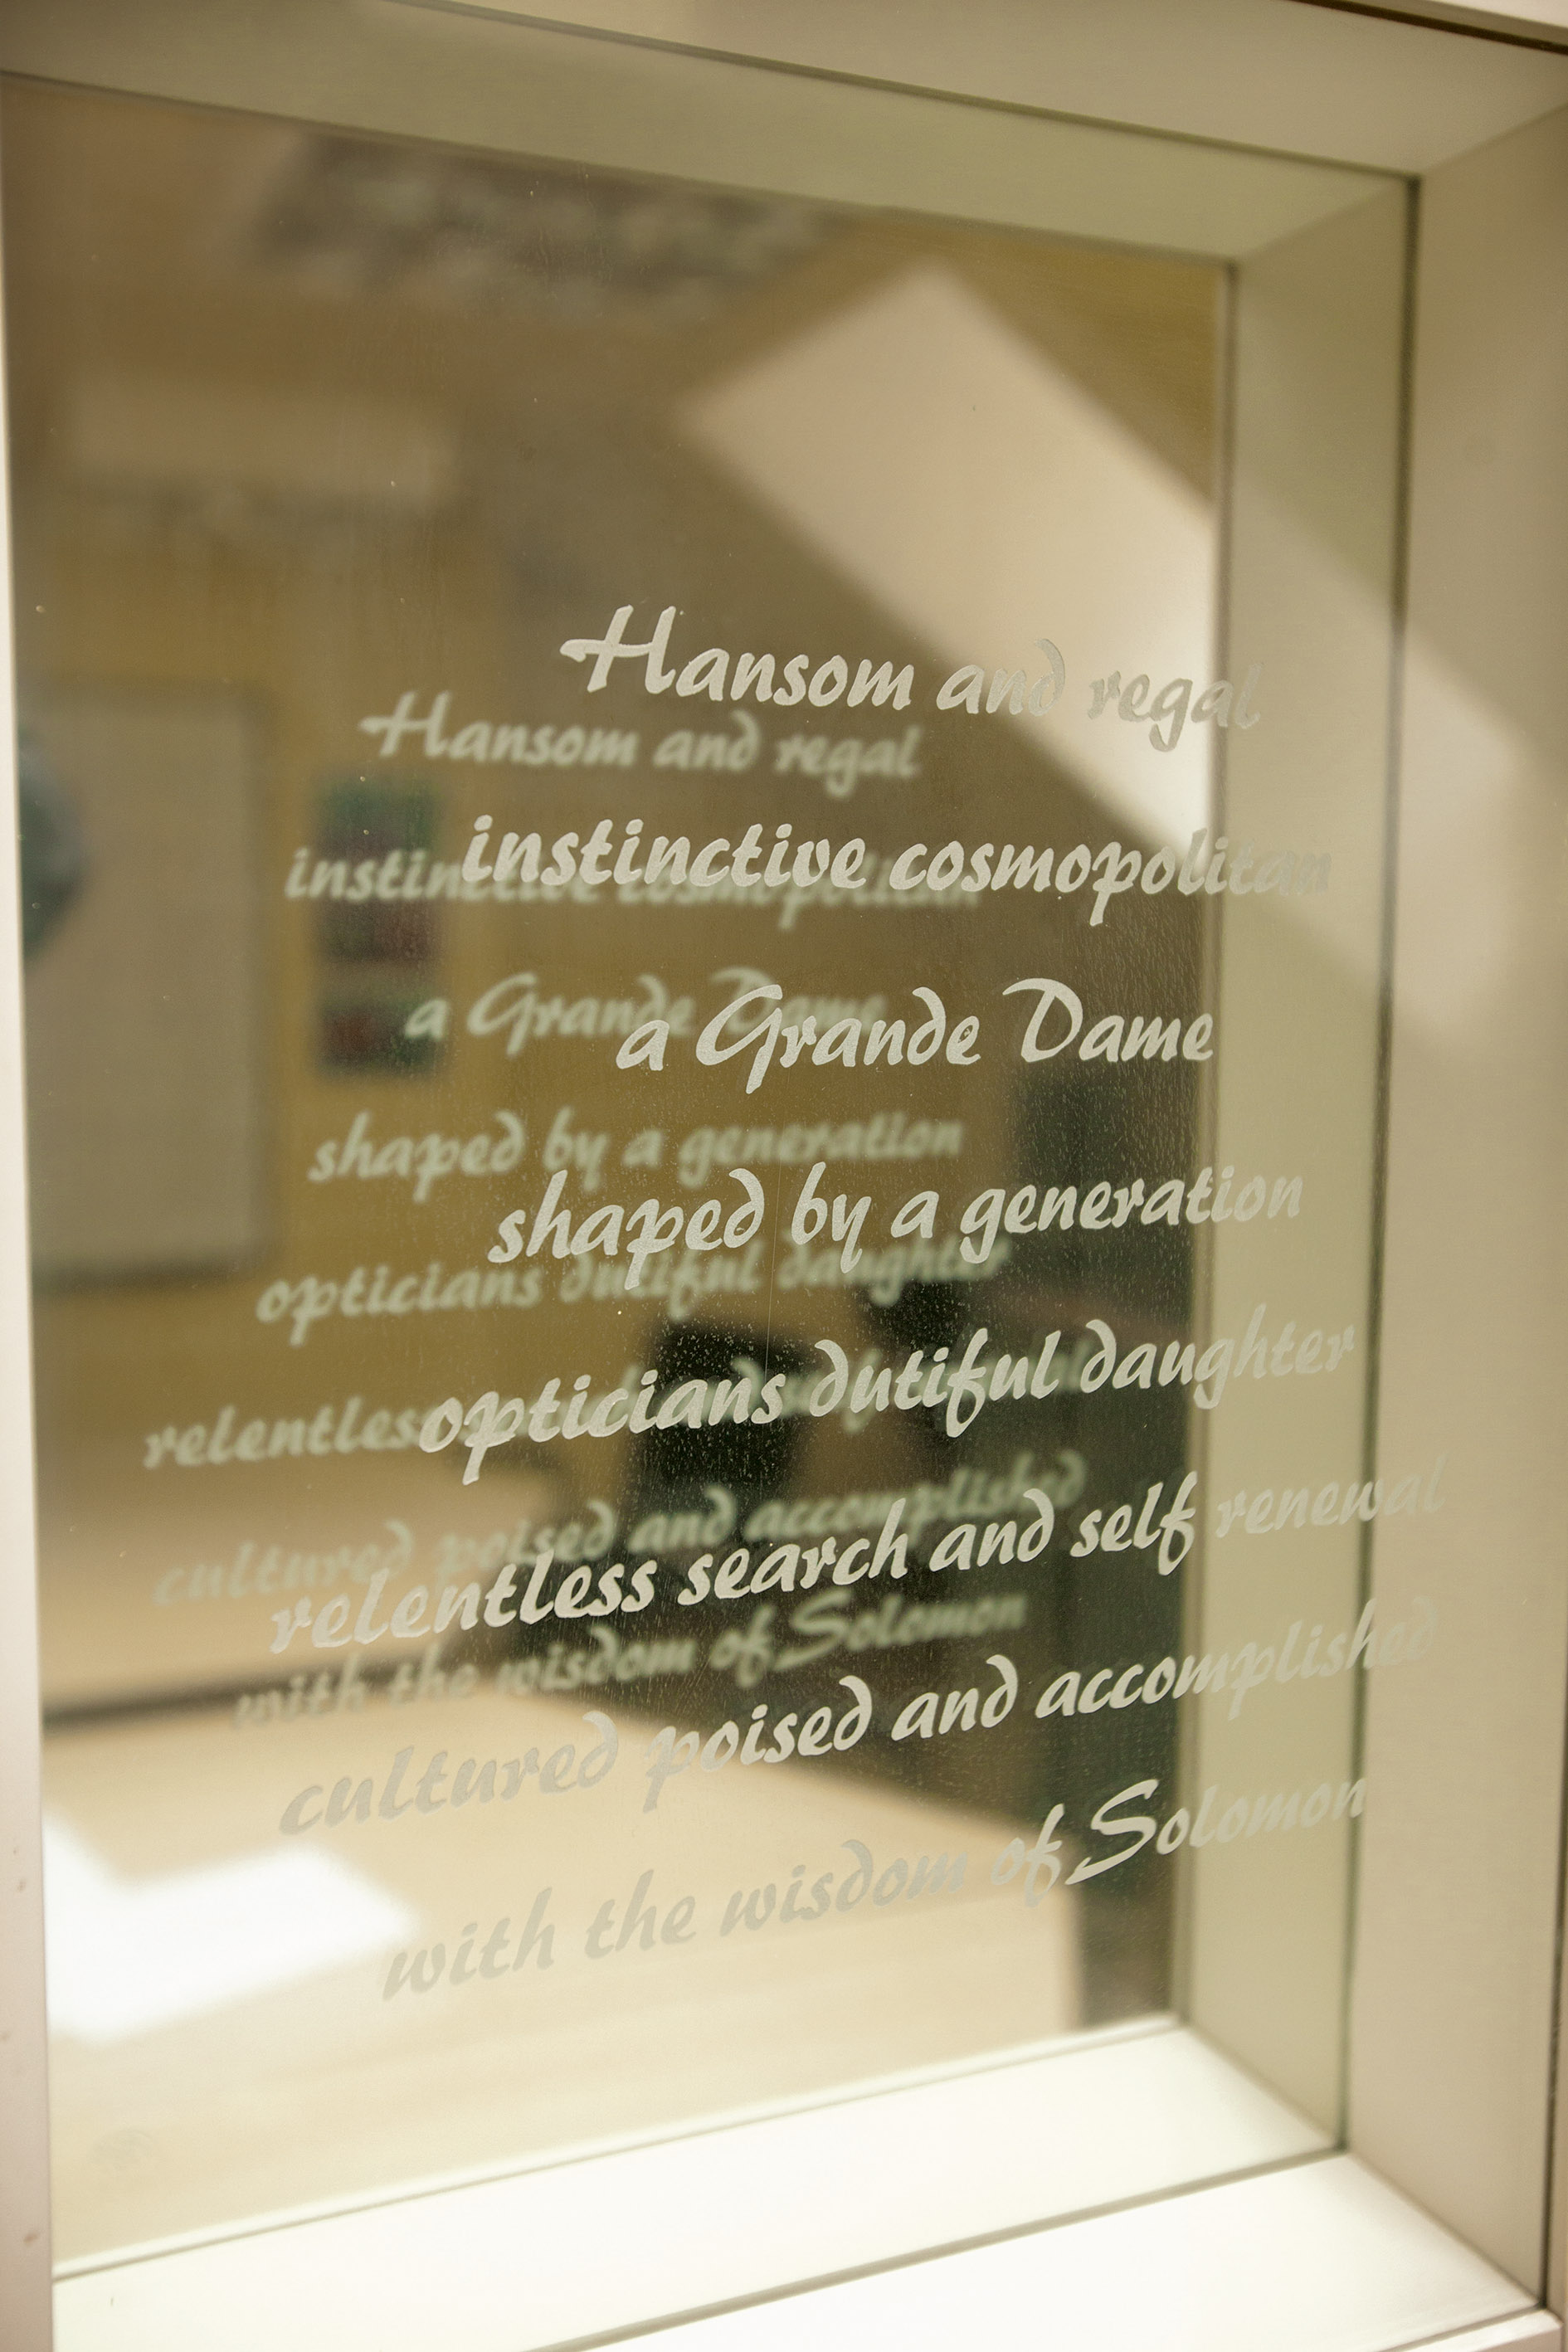 Hansom and regal
instinctive cosmopolitan
a Grande Dame
shaped by a generation
opticians dutiful daughter
relentless search and self renewal
cultured poised and accomplished
with the wisdom of Solomon